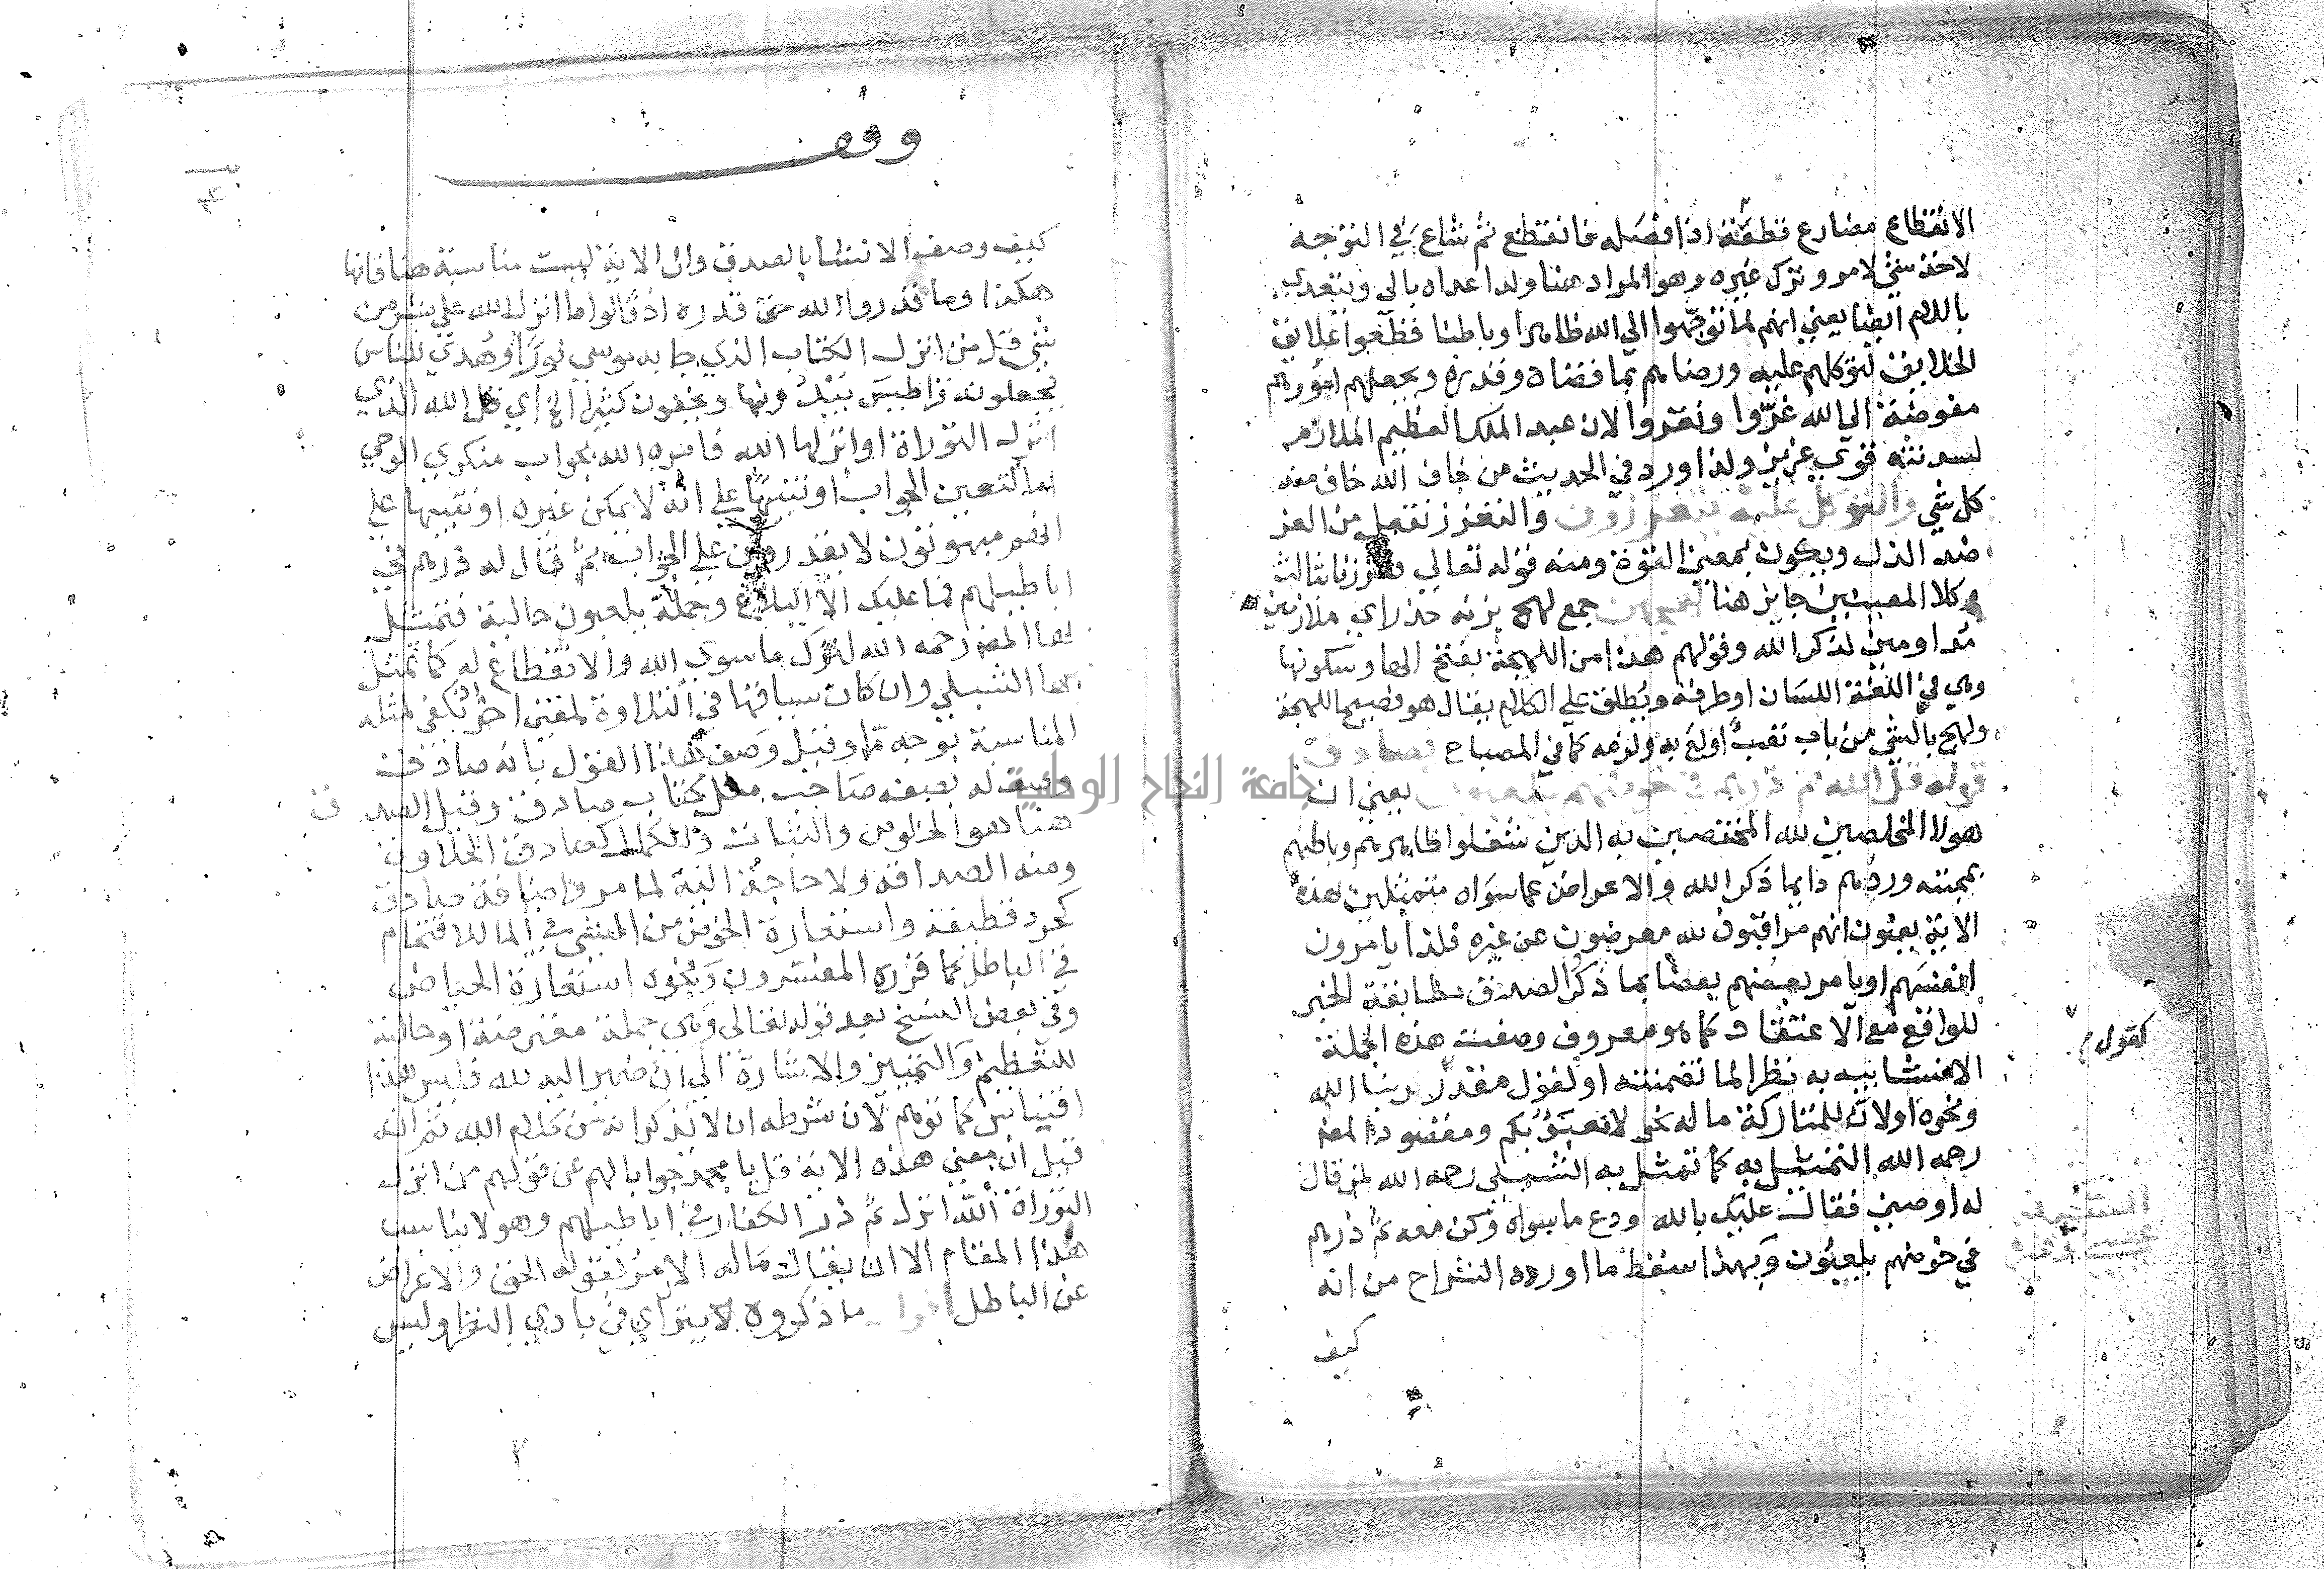 الانقطاع مضارع قطعته اذا فصله فانقطع ثم شاع في التوجه
لاخذ شئ لامر وترك غيره وهو المراد هنا ولذا عداه بالي ويتعدي
باللام ايضا يعني انهم لما توجهوا الي الله ظاهرا وباطنا فقطعوا علايق
الخلايق لتوكلهم عليه ورضاهم بما قضاه وقدره وبجعلهم امورهم
مفوضة الي الله عزوا وتقووا لان عبد الملك العظيم الملازم
لسدنته قوي عزيز ولذا ورد في الحديث من خاف الله خاف منه
كل شي والتوكل عليه يتعززون والتعزز تفعل من العز
ضد الذل ويكون بمعني القوة ومنه قوله تعالي فعززنا بثالث
وكلا المعنيين جايز هنا لهجين جمع لهج بزنة حذر اي ملازمين
مداومين لذكر الله وقولهم هذا من اللهجة بفتح الها وسكونها
وهي في اللغة اللسان او طرفه ويطلق علي الكلام يقال هو فصيح اللهجة
ولهج بالشي من باب تعب اولع به ولزمه كما في المصباح بصادق
قوله قل الله ثم ذرهم في خوضهم يلعبون يعني ان
هولا المخلصين لله المختصين به الذين شغلوا ظاهرهم وباطنهم
بمحبته وردهم دايما ذكر الله والاعراض عما سواه متمثلين هذه
الاية يعنون انهم مراقبون لله معرضون عن غيره فلذا يامرون
انفسهم او يامر بعضهم بعضا بما ذكر الصدق مطابقة الخبر
للواقع مع الاعتقاد كما هو معروف وصفت هذه الجملة
الانشاييه به نظرا لما تضمنته او لقول مقدر ربنا الله
ونحوه او لانه للمتاركة
كقول
رحمه الله التمثل به كما تمثل به الشبلي رحمه الله لمن قال
له اوصني فقال عليك بالله ودع ما سواه وكن معه ثم ذرهم
في خوضهم يلعبون وبهذا سقط ما اورده الشراح من انه
كيف
وقف
كيف وصف الانشا بالصدق وان الاية ليست مناسبة هنا فانها
هكذا وما قدروا الله حق قدره اذ قالوا ما انزل الله علي بشر من
شي قل من انزل الكتاب الذي جا به موسي نورا وهدي للناس
تجعلونه قراطيس تبدونها وتخفون كثيرا الخ اي قل الله الذي
انزل التوراة او انزلها الله فامره الله بجواب منكري الوحي
اما لتعين الجواب او تنبيها علي انه لا يمكن غيره او تنبيها علي
انهم مبهوتون لا يقدرون علي الجواب ثم قال له ذرهم في
اباطيلهم فما عليك الا البلاغ وجملة يلعبون حالية فتمثل
بها المص رحمه الله لترك ما سوي الله والانقطاع له كما تمثل
بها الشبلي وان كان سياقها في التلاوة لمعني اخر تكفي لمثله
المناسبة بوجه ما وقيل وصف هذا القول بانه صادق
وصف له بصفه صاحب مثل كتاب صادق وقيل الصدق
هنا هو الخلوص والثبات والكمال كصادق الحلاوة
ومنه الصداقة ولا حاجة اليه لما مر واضافة صادق
كجرد قطيفة واستعارة الخوض من المشي في الما للاقتحام
في الباطل كما قرره المفسرون ونحوه استعارة الحياض
وفي بعض النسخ بعد قوله تعالى وهي جملة معترضة او حالية
للتعظيم والتمييز والاشارة الي ان ضمير اليه لله فليس هذا
اقتباس كما توهم لان شرطه ان لا يذكر انه من كلام الله ثم انه
قيل ان معني هذه الاية قل يا محمد جوابا لهم عن قولهم من انزل
التوراة الله انزل ثم ذر الكفار في اباطيلهم وهو لا يناسب
هذا المقام الا ان يقال ماله الامر بقوله الحق والاعراض
عن الباطل اقول ما ذكروه لا يتراي في بادي النظر وليس
جامعة النجاح الوطنية